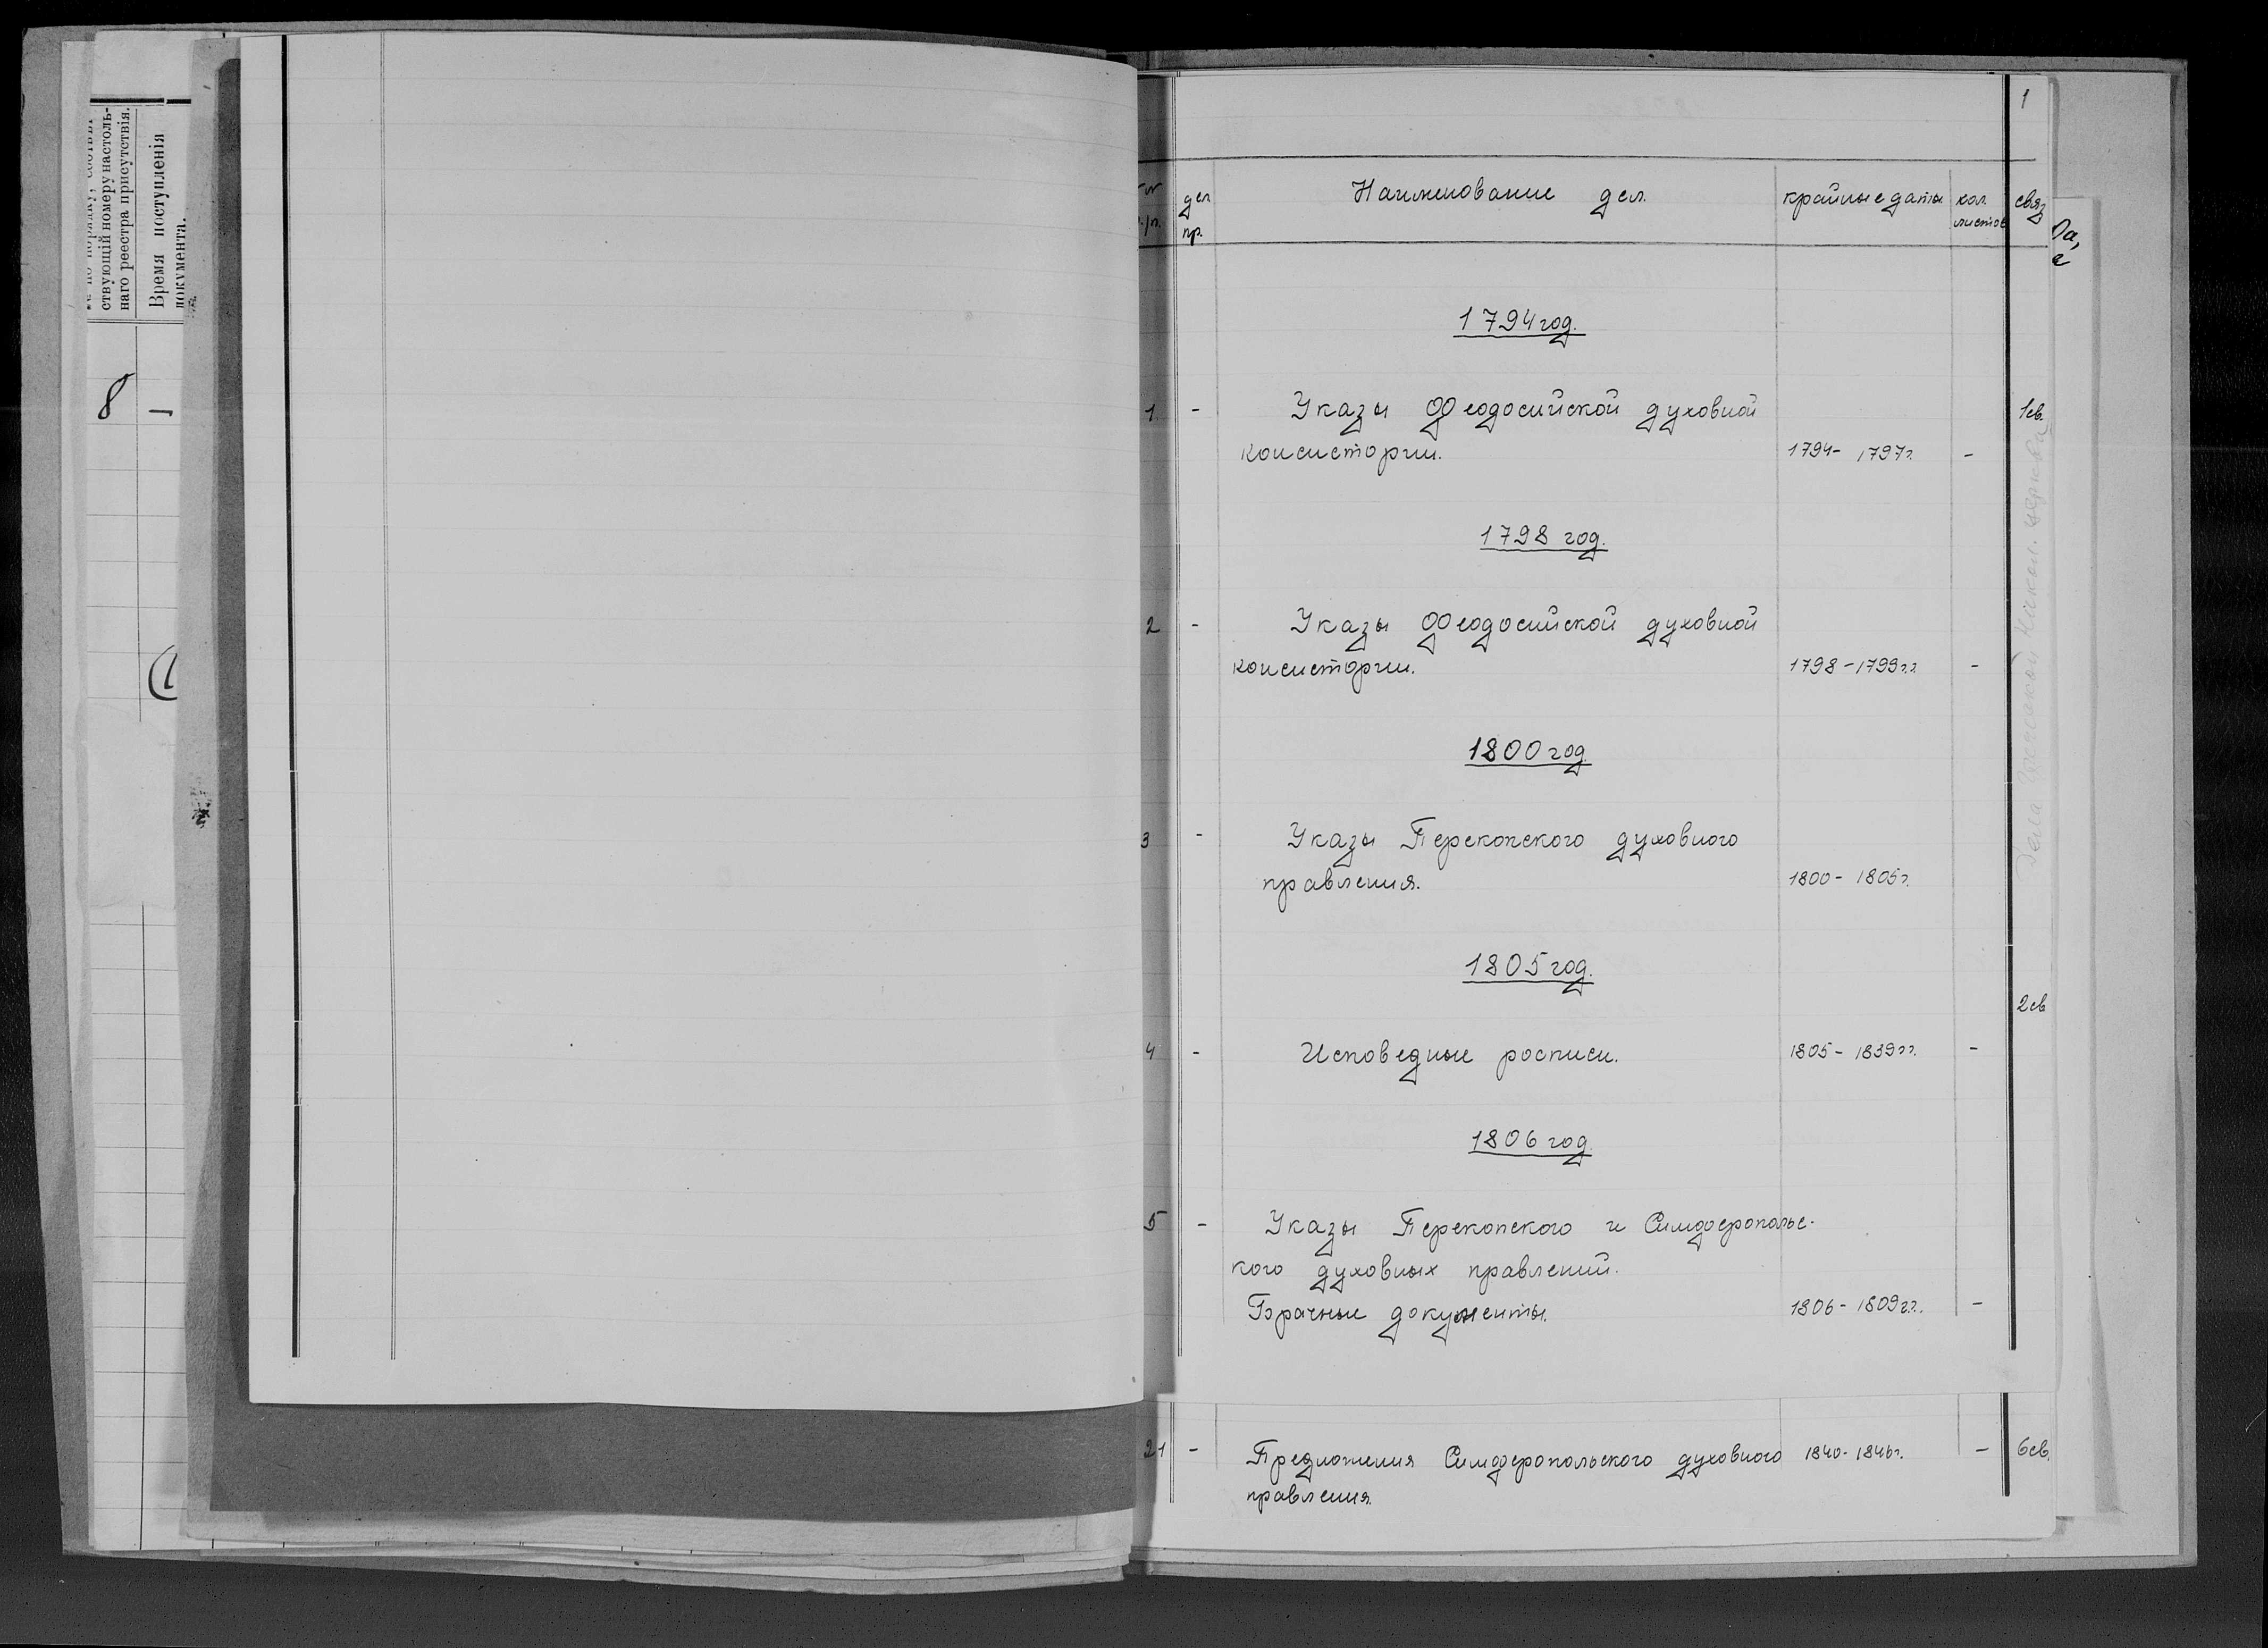 ствующій номеру настоль-
наго реестра присутствія.
Время поступленія
документа.
8 –
1
дел пр.
Наименование дел.
крайные даты
кол. листов
связ
1794 год.
1 - Указы Феодосийской духовной 1св.
консистории. 1794- 1797г. -
1798 год.
2 - Указы Феодосийской духовной
консистории. 1798-1799г.г. -
1800 год
3 - Указы Перекопского духовного
правления. 1800- 1805г.
1805 год.
2св
4 - Исповедные росписи. 1805- 1839гг. -
1806 год
5 - Указы Перекопского и Симферопольс-
кого духовных правлений.
Брачные документы. 1806- 1809г.г. -
21 - Предложения Симферопольского духовного 1840-1846г. - 6св.
правления.